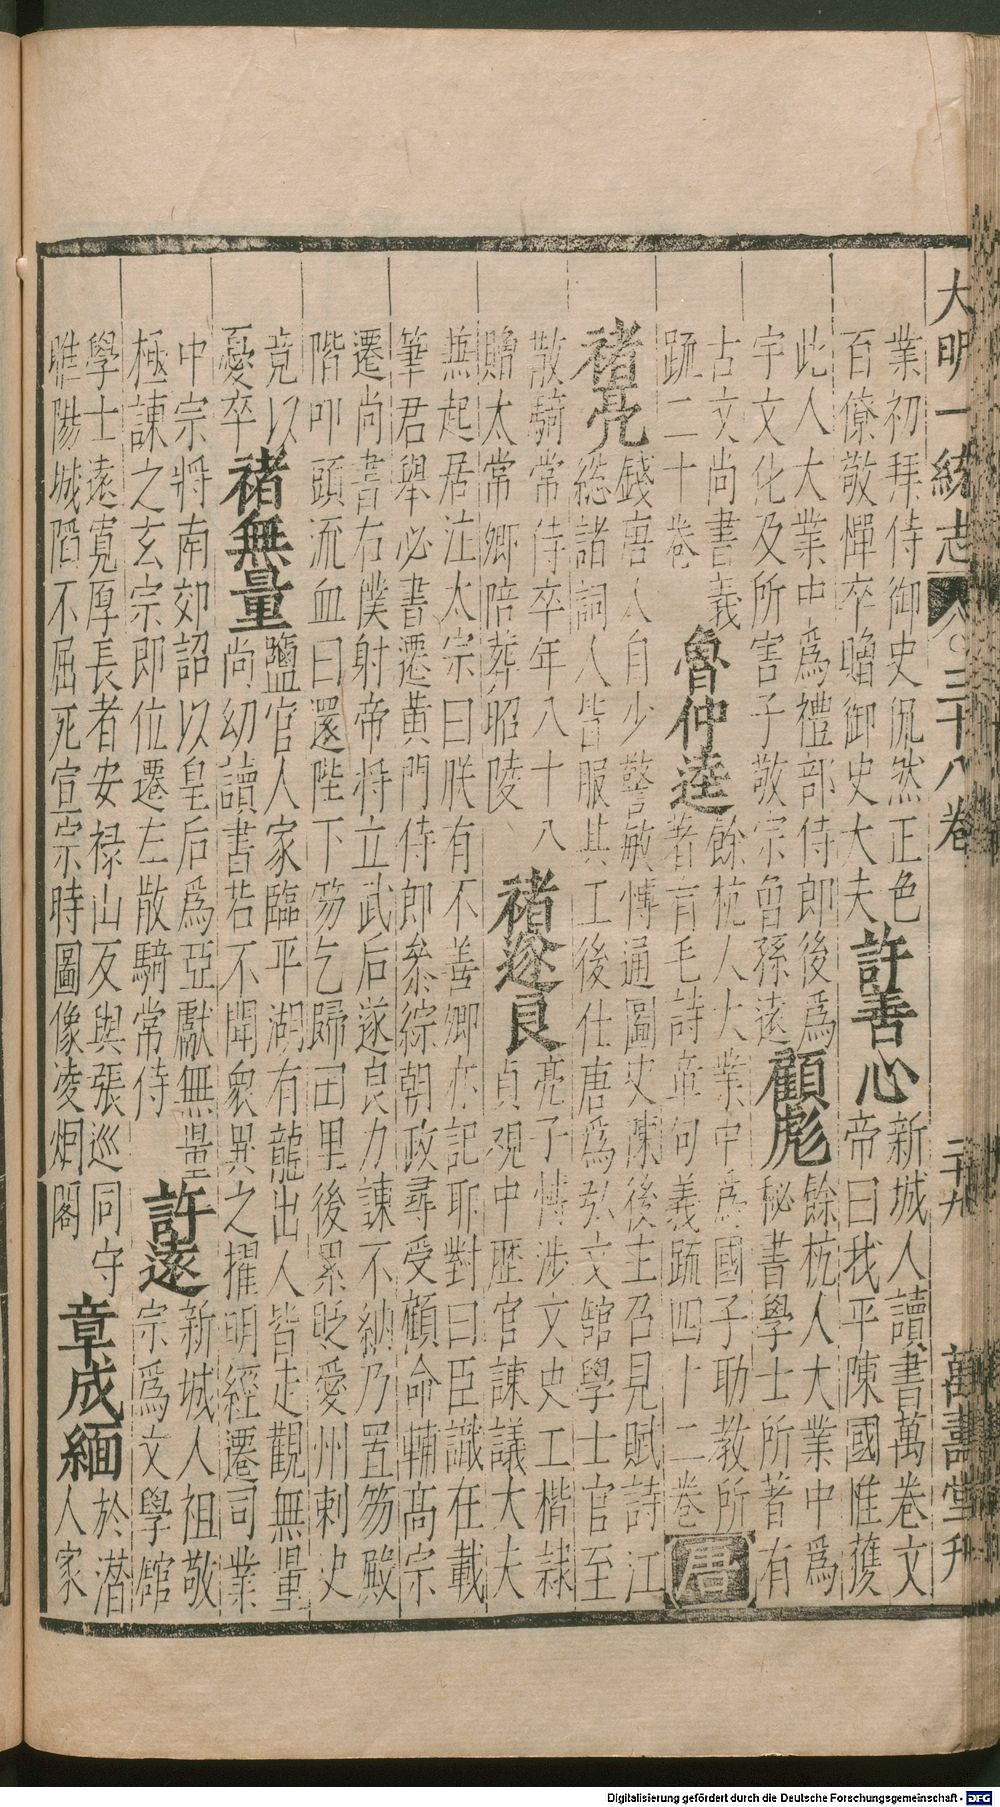 大明一統志 卷○三十八卷 二十九 萬壽堂刊
業初拜侍御史侃然正色
百僚敬憚卒贍御史大夫
許善心
新城人讀書萬卷文
帝曰我平陳國惟獲
此人大業中爲禮部侍郎後爲
宇文化及所害子敬宗曾孫遠
顧彪
餘杭人大業中爲
秘書學士所著有
古文尚書義
疏二十卷
魯仲逵
餘杭人大業中爲國子助教所
著有毛詩章句義疏四十二卷
唐
褚亮
錢唐人自少警敏博通圖史陳後主召見賦詩江
總諸詞人皆服其工後仕唐爲弘文舘學士官至
散騎常侍卒年八十八
贈太常卿陪葬昭陵
褚遂良
亮子博涉文史工楷隷
貞觀中歷官諫議大大
兼起居注太宗曰朕有不善卿亦記耶對曰臣識在載
筆君舉必書遷黃門侍郎叅綜朝政尋受顧命輔高宗
遷尚書右僕射帝將立武后遂良力諫不納乃置笏殿
階叩頭流血曰還陛下笏乞歸田里後累貶愛州刺史
竟以
憂卒
褚無量
鹽官人家臨平湖有龍出人皆走觀無量
尚幼讀書若不聞衆異之擢明經遷司業
中宗將南郊詔以皇后爲亞獻無量
極諫之玄宗即位遷左散騎常侍
許遠
新城人祖敬
宗爲文學舘
學士遠寬厚長者安禄山反與張巡同守
睢陽城陷不屈死宣宗時圖像凌烟閣
章成緬
於潛
人家
Digitalisierung gefördert durch die Deutsche Forschungsgemeinschaft - DFG